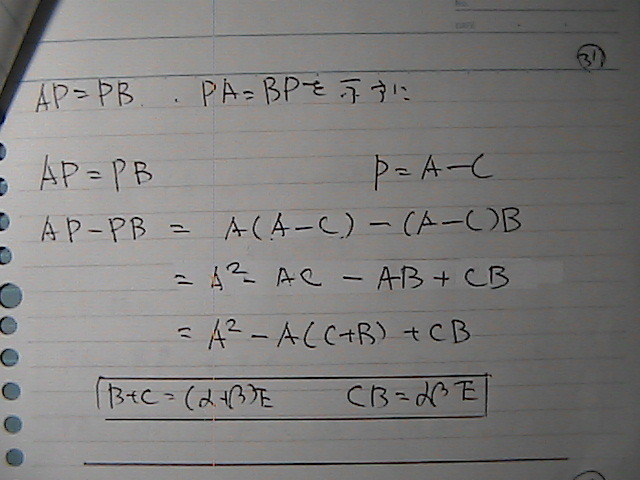 ㉛
AP=PB. PA=BPを示すに
AP=PB P=A-C
AP-PB = A(A-C)-(A-C)B
= A²-AC-AB+CB
= A²-A(C+B)+CB
B+C=(α+β)E CB=αβE